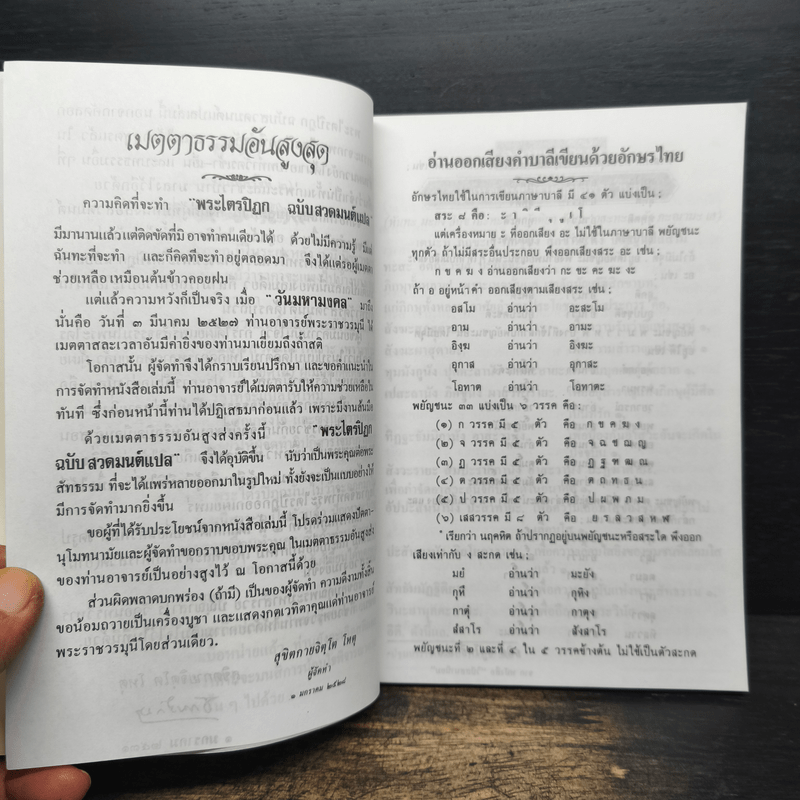 เมตตาธรรมอันสูงสุด
ความคิดที่จะทำ "พระไตรปิฎก ฉบับสวดมนต์แปล"
มีมานานแล้วแต่ติดขัดที่มิอาจทำคนเดียวได้ ด้วยไม่มีความรู้ มีแต่
ฉันทะที่จะทำ และก็คิดที่จะทำอยู่ตลอดมา จึงได้แต่รอผู้เมตตา
ช่วยเหลือ เหมือนต้นข้าวคอยฝน
แต่แล้วความหวังก็เป็นจริง เมื่อ "วันมหามงคล" มาถึง
นั่นคือ วันที่ ๓ มีนาคม ๒๕๒๗ ท่านอาจารย์พระราชวรมุนี ได้
เมตตาสละเวลาอันมีค่ายิ่งของท่านมาเยี่ยมถึงถ้ำสติ
โอกาสนั้น ผู้จัดทำจึงได้กราบเรียนปรึกษา และขอคำแนะนำใน
การจัดทำหนังสือเล่มนี้ ท่านอาจารย์ก็ได้เมตตารับให้ความช่วยเหลือใน
ทันที ซึ่งก่อนหน้านี้ท่านได้ปฏิเสธมาก่อนแล้ว เพราะมีงานล้นมือ
ด้วยเมตตาธรรมอันสูงส่งครั้งนี้ "พระไตรปิฎก
ฉบับ สวดมนต์แปล" จึงได้อุบัติขึ้น นับว่าเป็นพระคุณต่อพระ
สัทธรรม ที่จะได้แพร่หลายออกมาในรูปใหม่ ทั้งยังจะเป็นแบบอย่างให้
มีการจัดทำมากยิ่งขึ้น
ขอผู้ที่ได้รับประโยชน์จากหนังสือเล่มนี้ โปรดร่วมแสดงปัตตา-
นุโมทนามัยและผู้จัดทำขอกราบขอบพระคุณ ในเมตตาธรรมอันสูงส่ง
ของท่านอาจารย์เป็นอย่างสูงไว้ ณ โอกาสนี้ด้วย
ส่วนผิดพลาดบกพร่อง (ถ้ามี) เป็นของผู้จัดทำ ความดีงามทั้งสิ้น
ขอน้อมถวายเป็นเครื่องบูชา และแสดงกตเวทิตาคุณแด่ท่านอาจารย์
พระราชวรมุนีโดยส่วนเดียว.
สุขิตกายจิตฺโต โหตุ
ผู้จัดทำ
๑ มกราคม ๒๕๒๘
อ่านออกเสียงคำบาลีเขียนด้วยอักษรไทย
อักษรไทยใช้ในการเขียนภาษาบาลี มี ๔๑ ตัว แบ่งเป็น ;
สระ ๘ คือ : ะ า ิ ี ุ ู เ โ
แต่เครื่องหมาย ะ ที่ออกเสียง อะ ไม่ใช้ในภาษาบาลี พยัญชนะ
ทุกตัว ถ้าไม่มีสระอื่นประกอบ พึงออกเสียงสระ อะ เช่น ;
ก ข ค ฆ ง อ่านออกเสียงว่า กะ ขะ คะ ฆะ งะ
ถ้า อ อยู่หน้าคำ ออกเสียงตามเสียงสระ เช่น ;
อสโม อ่านว่า อะสะโม
อาม อ่านว่า อามะ
อิงฺฆ อ่านว่า อิงฆะ
อุกาส อ่านว่า อุกาสะ
โอทาต อ่านว่า โอทาตะ
พยัญชนะ ๓๓ แบ่งเป็น ๖ วรรค คือ :
(๑) ก วรรค มี ๕ ตัว คือ ก ข ค ฆ ง
(๒) จ วรรค มี ๕ ตัว คือ จ ฉ ช ฌ ญ
(๓) ฏ วรรค มี ๕ ตัว คือ ฏ ฐ ฑ ฒ ณ
(๔) ต วรรค มี ๕ ตัว คือ ต ถ ท ธ น
(๕) ป วรรค มี ๕ ตัว คือ ป ผ พ ภ ม
(๖) เสสวรรค มี ๘ ตัว คือ ย ร ล ว ส ห ฬ ํ
ํ เรียกว่า นฤคหิต ถ้าปรากฏอยู่บนพยัญชนะหรือสระใด พึงออก
เสียงเท่ากับ ง สะกด เช่น ;
มยํ อ่านว่า มะยัง
กุหึ อ่านว่า กุหิง
กาตุํ อ่านว่า กาตุง
สํสาโร อ่านว่า สังสาโร
พยัญชนะที่ ๒ และที่ ๔ ใน ๕ วรรคข้างต้น ไม่ใช้เป็นตัวสะกด